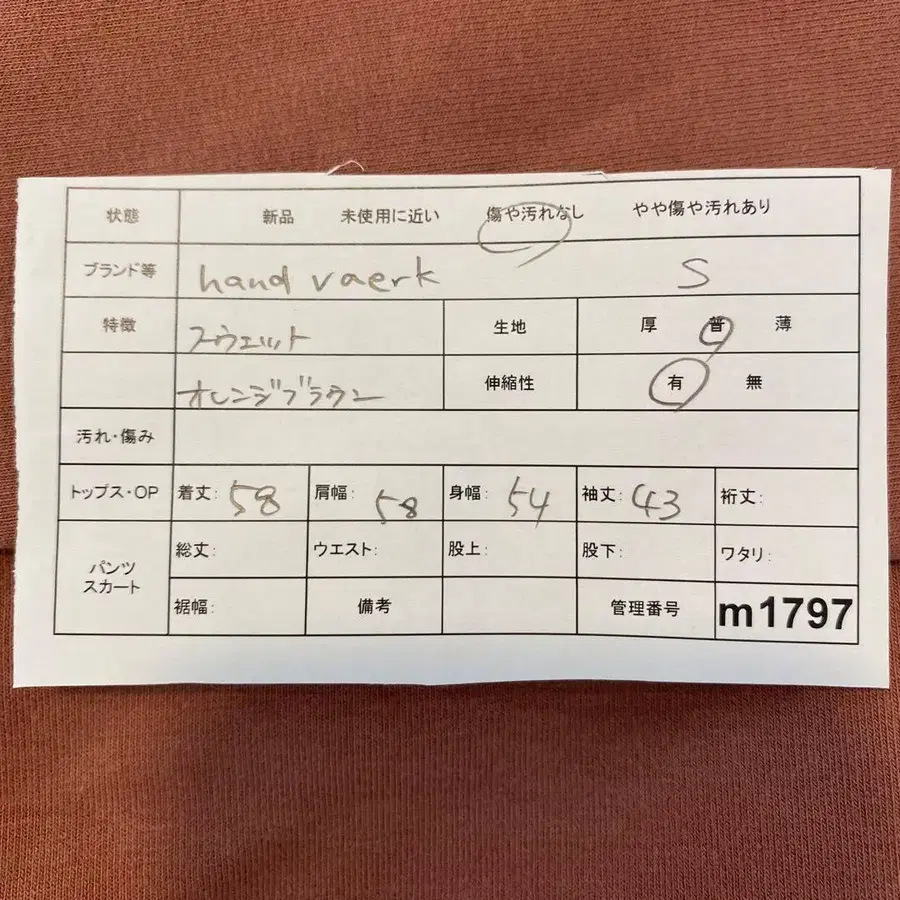 状態 新品 未使用に近い 傷や汚れなし やや傷や汚れあり
ブランド等 hand vaerk S
特徴 スウェット 生地 厚 普 薄
オレンジブラウン 伸縮性 有 無
汚れ・傷み
トップス・OP 着丈: 58 肩幅: 58 身幅: 54 袖丈: 43 裄丈:
パンツ スカート 総丈: ウエスト: 股上: 股下: ワタリ:
裾幅: 備考 管理番号 m1797